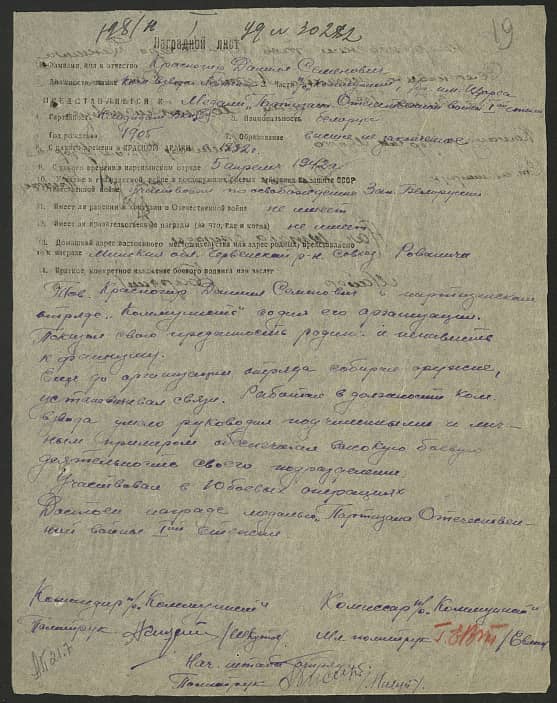 198/н I уд № 30282
19
Наградной лист
1. Фамилия, имя и отчество Красногир Даниил Семенович
2. Должность, звание ком. взвода 3. Часть п/о "Коммунист", им. Щорса
ПРЕДСТАВЛЯЕТСЯ К Медали "Партизан Отечественной войны" I степени
4. Национальность белорус
Год рождения 1905 7. Образование высшее не законченное
С какого времени в КРАСНОЙ АРМИИ
9. С какого времени в партизанском отряде 5 апреля 1942 г.
10. в гражданской войне и последующих боевых действиях по защите СССР
Отечественной войны Участвовал по освобождению Зап. Белоруссии
11. Имеет ли ранения и контузии в Отечественной войне не имеет
12. Имеет ли правительственные награды (за что, где и когда) не имеет
13. Домашний адрес постоянного жительства или адрес родных, представляемого
к награде Минская обл. Червенский р-н. совхоз Рованичи
1. Краткое, конкретное изложение боевого подвига или заслуг
Тов. Красногир Даниил Семенович в партизанском
отряде "Коммунист" со дня его организации.
Показал свою преданность родине и ненависть
к фашизму.
Еще до организации отряда собирал оружие,
устанавливал связи. Работая в должности ком.
взвода умело руководил подчиненными и лич-
ным примером обеспечивал высокую боевую
деятельность своего подразделения
Участвовал в 10 боевых операциях
Достоен награде медалью "Партизана Отечествен-
ной войны I-ой степени
Командир п/о "Коммунист" Комиссар п/о "Коммунист"
Политрук Мл. политрук
Нач. штаба отряда
Политрук